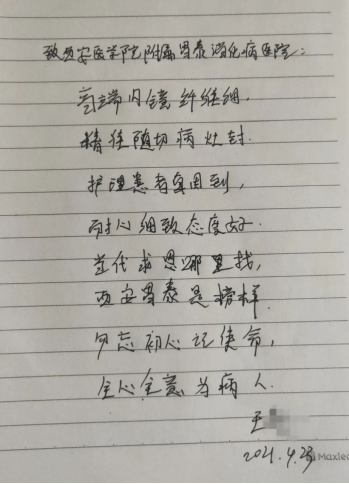 致西安医学院附属国泰消化病医院：
高端内镜纤维细，
精准随切病灶封.
护理患者真周到，
耐心细致态度好.
当代求恩哪里找，
西安国泰是榜样.
勿忘初心记使命，
全心全意为病人.
王
2021.4.23
Maxlea